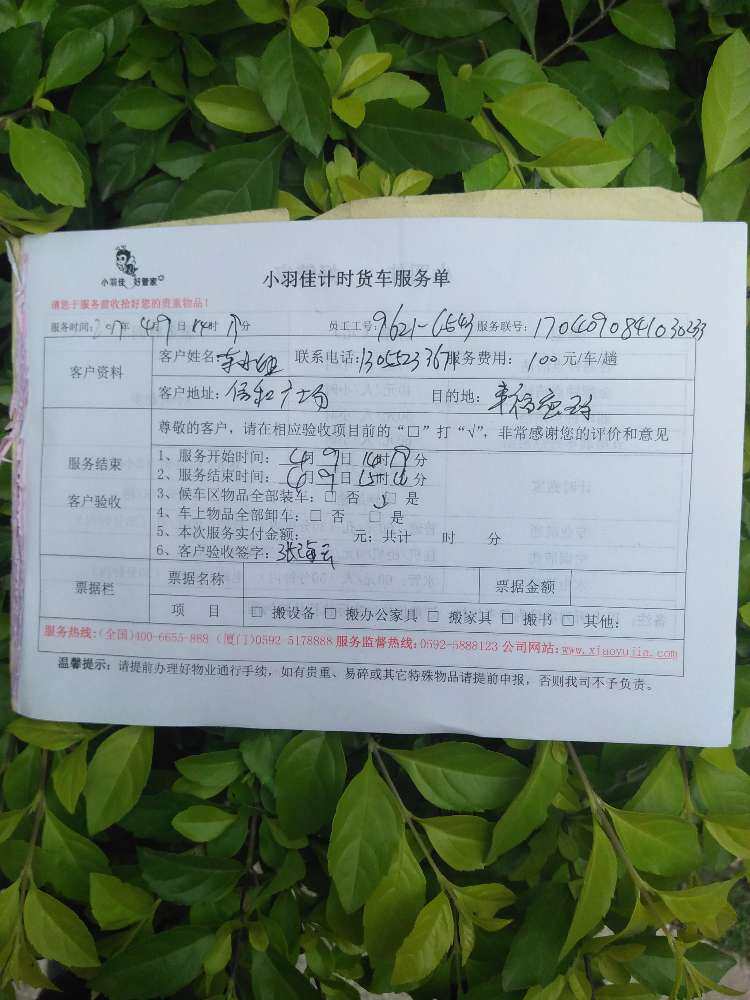 小羽佳 好管家
小羽佳计时货车服务单
请您于服务前收拾好您的贵重物品!
服务时间: 2017年 4月9日 14时 分 员工工号: 9621-6543 服务联号: 1704090841030233
客户资料
客户姓名: 联系电话: 服务费用: 100元/车/趟
客户地址: 广场 目的地:
服务结束
客户验收
尊敬的客户，请在相应验收项目前的“□”打“√”，非常感谢您的评价和意见
1、服务开始时间: 4月9日14时 分
2、服务结束时间: 4月9日15时 分
3、候车区物品全部装车: □ 否 □ 是
4、车上物品全部卸车: □ 否 □ 是
5、本次服务实付金额: 元: 共计 时 分
6、客户验收签字: 张海云
票据栏
票据名称 票据金额
项 目 □ 搬设备 □ 搬办公家具 □ 搬家具 □ 搬书 □ 其他:
服务热线:(全国)400-6655-888 (厦门)0592-5178888 服务监督热线:0592-5888123 公司网站:www.xiaoyujia.com
温馨提示: 请提前办理好物业通行手续，如有贵重、易碎或其它特殊物品请提前申报，否则我司不予负责。